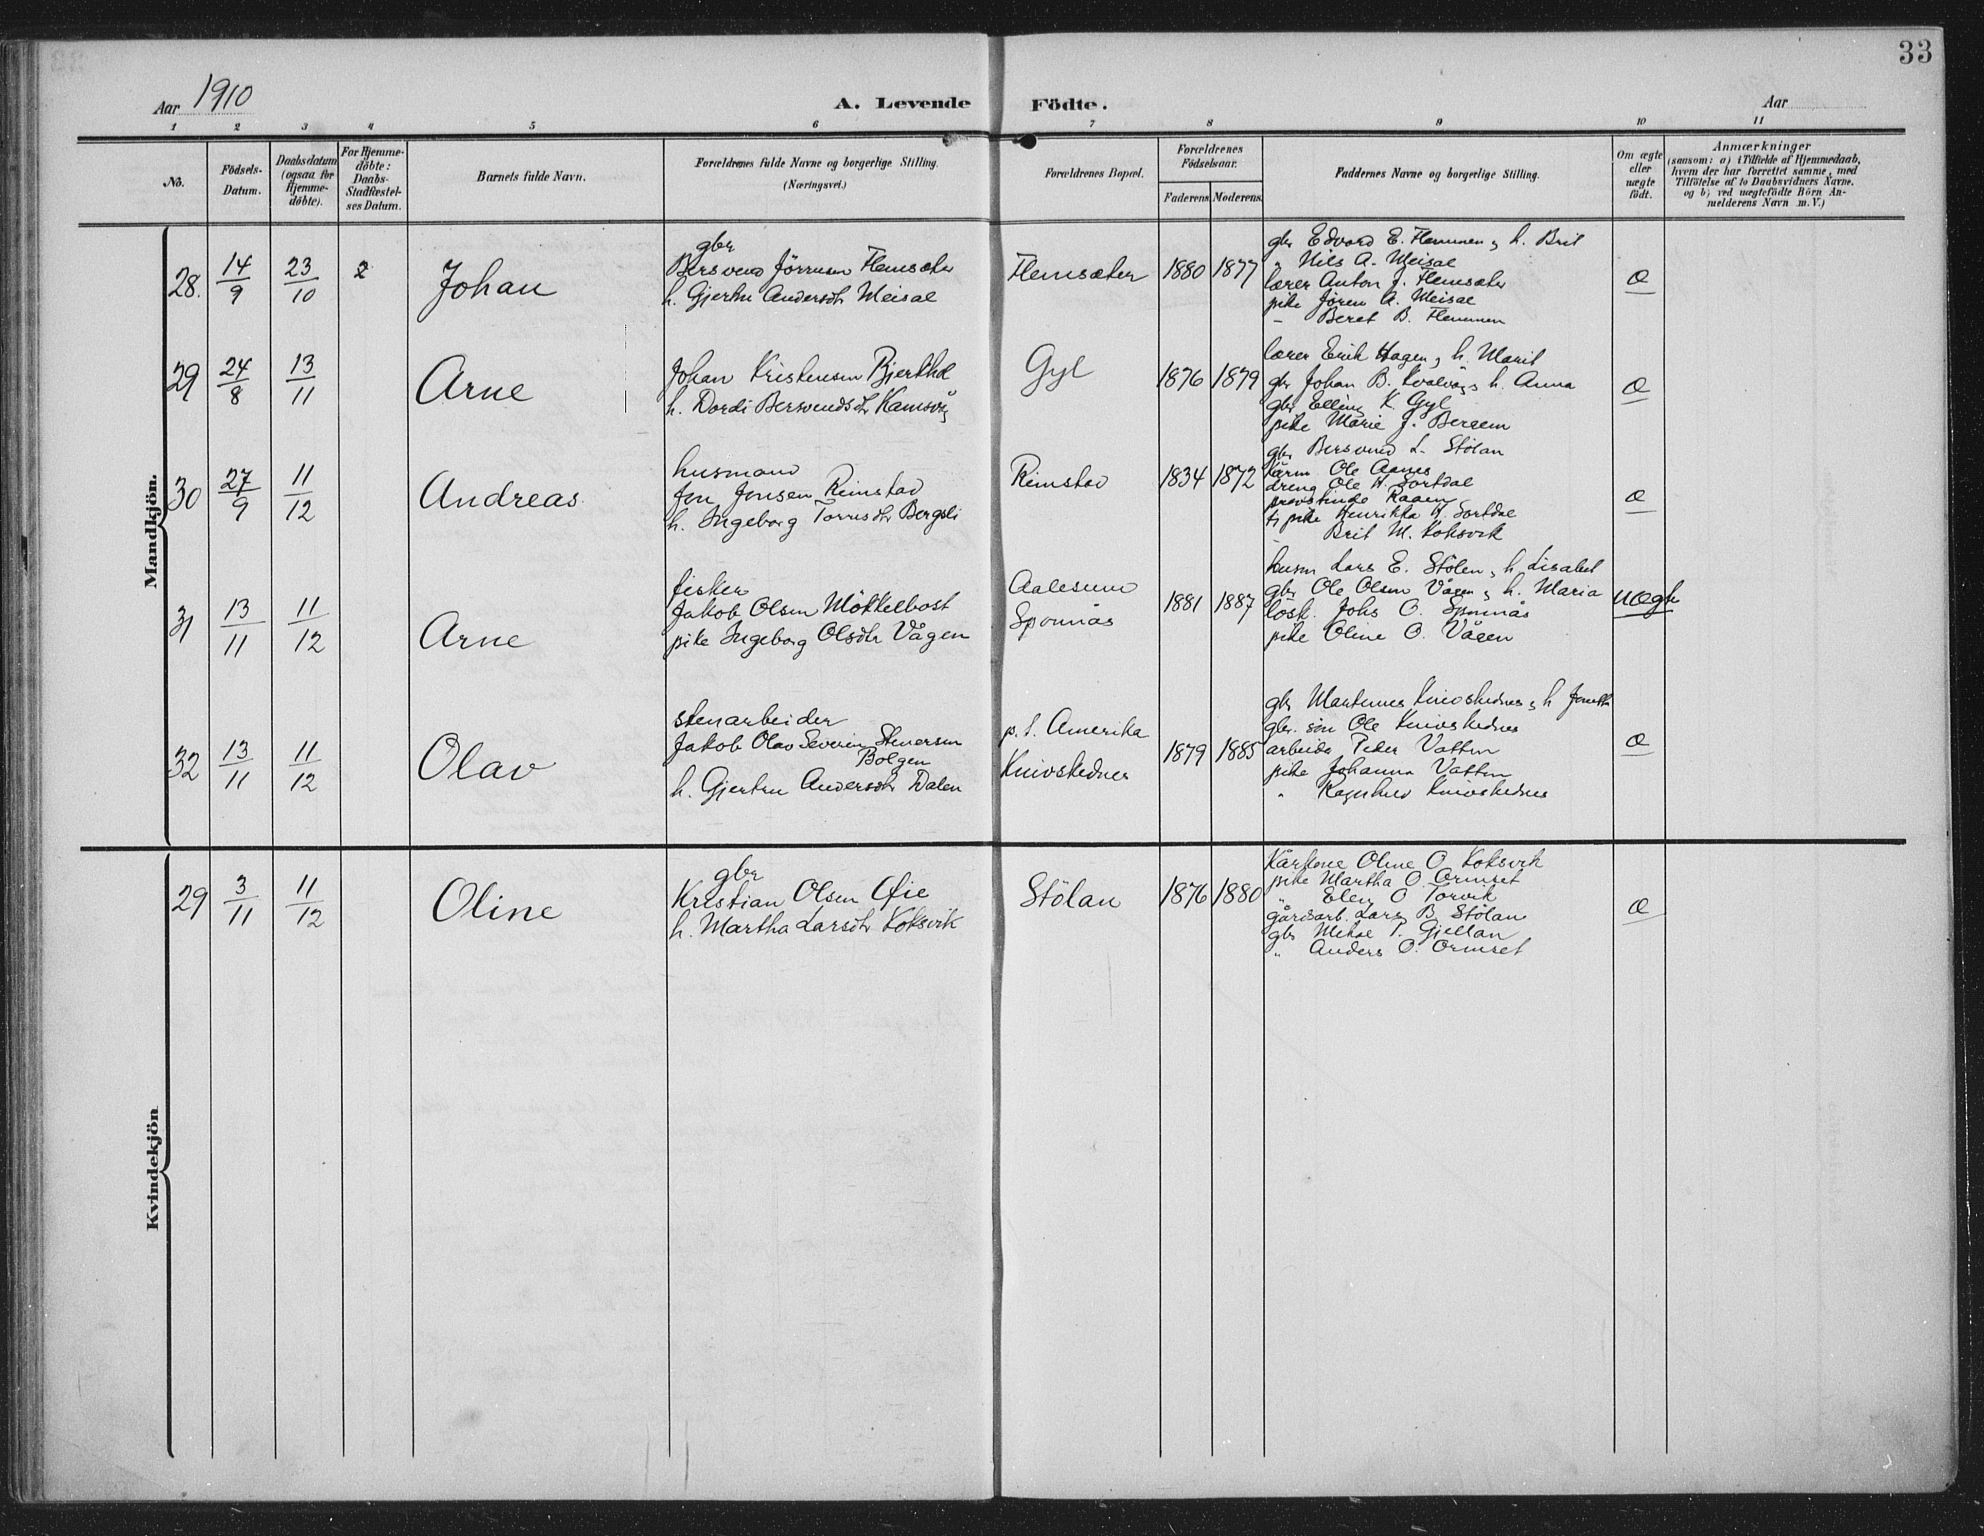 33
Aar 1910
A. Levende Födte.
Aar
1 2 3 4 5 6 7 8 9 10 11
No.
Födsels-
Datum.
Daabsdatum
(ogsaa for
Hjemme-
döbte).
For Hjemme-
döbte:
Daabs-
Stadfæstel-
ses Datum.
Barnets fulde Navn.
Forældrenes fulde Navne og borgerlige Stilling.
(Næringsvei.)
Forældrenes Bopæl.
Forældrenes
Födselsaar.
Faderens. Moderens.
Faddernes Navne og borgerlige Stilling.
Om ægte
eller
uægte
födt.
Anmærkninger
(saasom: a) i Tilfælde af Hjemmedaab,
hvem der har forrettet samme, med
Tilföielse af to Daabsvidners Navne,
og b) ved uægtefödte Börn An-
melderens Navn m. V.)
Mandkjön.
28. 14/9 23/10
Johan
gbr
Bersvend Jörnsen Flemsæter
h. Gjertru Andersdtr Meisal
Flemsæter
1880 1877
gbr Edvard E. Flemmen, h. Brit
" Nils A. Meisal
lærer Anton J. Flemsæter
pike Jören A. Meisal
- Beret B. Flemmen
æ
29 24/8 13/11
Arne
Johan Kristensen Bjerkhol
h. Dordi Bersvendsdtr Kamsvåg
Gyl
1876 1879
lærer Erik Hagen, h. Marit
gbr Johan B. Kvalvåg, h. Anna
gbr Elling K. Gyl
pike Marie J. Bergem
æ
30 27/9 11/12
Andreas
husmand
Jon Jonsen Reinstad
h. Ingeborg Torresdtr Bergsli
Reinstad
1834 1872
gbr Bersvend L. Stölan
Ole Aanes
dreng Ole H. Sortdal
provstinde Kaaen
tj pike Henrikka H. Sortdal
- Brit M. Koksvik
æ
31 13/11 11/12
Arne
fisker
Jakob Olsen Mökkelbost
pike Ingeborg Olsdtr Vågen
Aalesund
Sponnås
1881 1887
husm Lars E. Stölen, h. Lisabet
gbr Ole Olsen Vågen, h. Maria
lösk. Johs O. Sponnås
pike Oline O. Vågen
uægte
32 13/11 11/12
Olav
stenarbeider
Jakob Olav Severin Stenersen
Bolgen
h. Gjertru Andersdtr Dalen
p. t. Amerika
Knivskednes
1879 1885
gbr Martinus Knivskednes, h
gbr. sön Ole Knivskednes
arbeider Peder Vatten
pike Johanna Vatten
" Ragnhild Knivskednes
æ
Kvindekjön
29 3/11 11/12
Oline
gbr
Kristian Olsen Øie
h. Martha Larsdtr Koksvik
Stölan
1876 1880
Kårkone Oline O. Koksvik
pike Martha O. Ormset
" Elen O Torvik
gårdsarb. Lars B. Stölan
gbr Mikal P. Gjellan
" Anders O. Ormset
æ